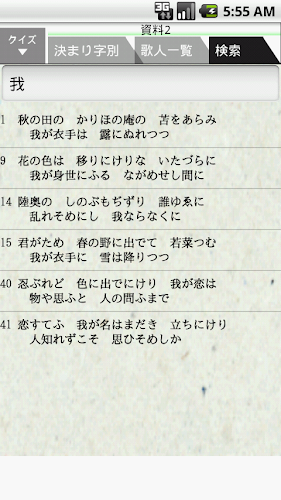 3G
5:55 AM
資料2
クイズ
決まり字別
歌人一覧
検索
我
1 秋の田の かりほの庵の 苫をあらみ
我が衣手は 露にぬれつつ
9 花の色は 移りにけりな いたづらに
我が身世にふる ながめせし間に
14 陸奥の しのぶもぢずり 誰ゆゑに
乱れそめにし 我ならなくに
15 君がため 春の野に出でて 若菜つむ
我が衣手に 雪は降りつつ
40 忍ぶれど 色に出でにけり 我が恋は
物や思ふと 人の問ふまで
41 恋すてふ 我が名はまだき 立ちにけり
人知れずこそ 思ひそめしか